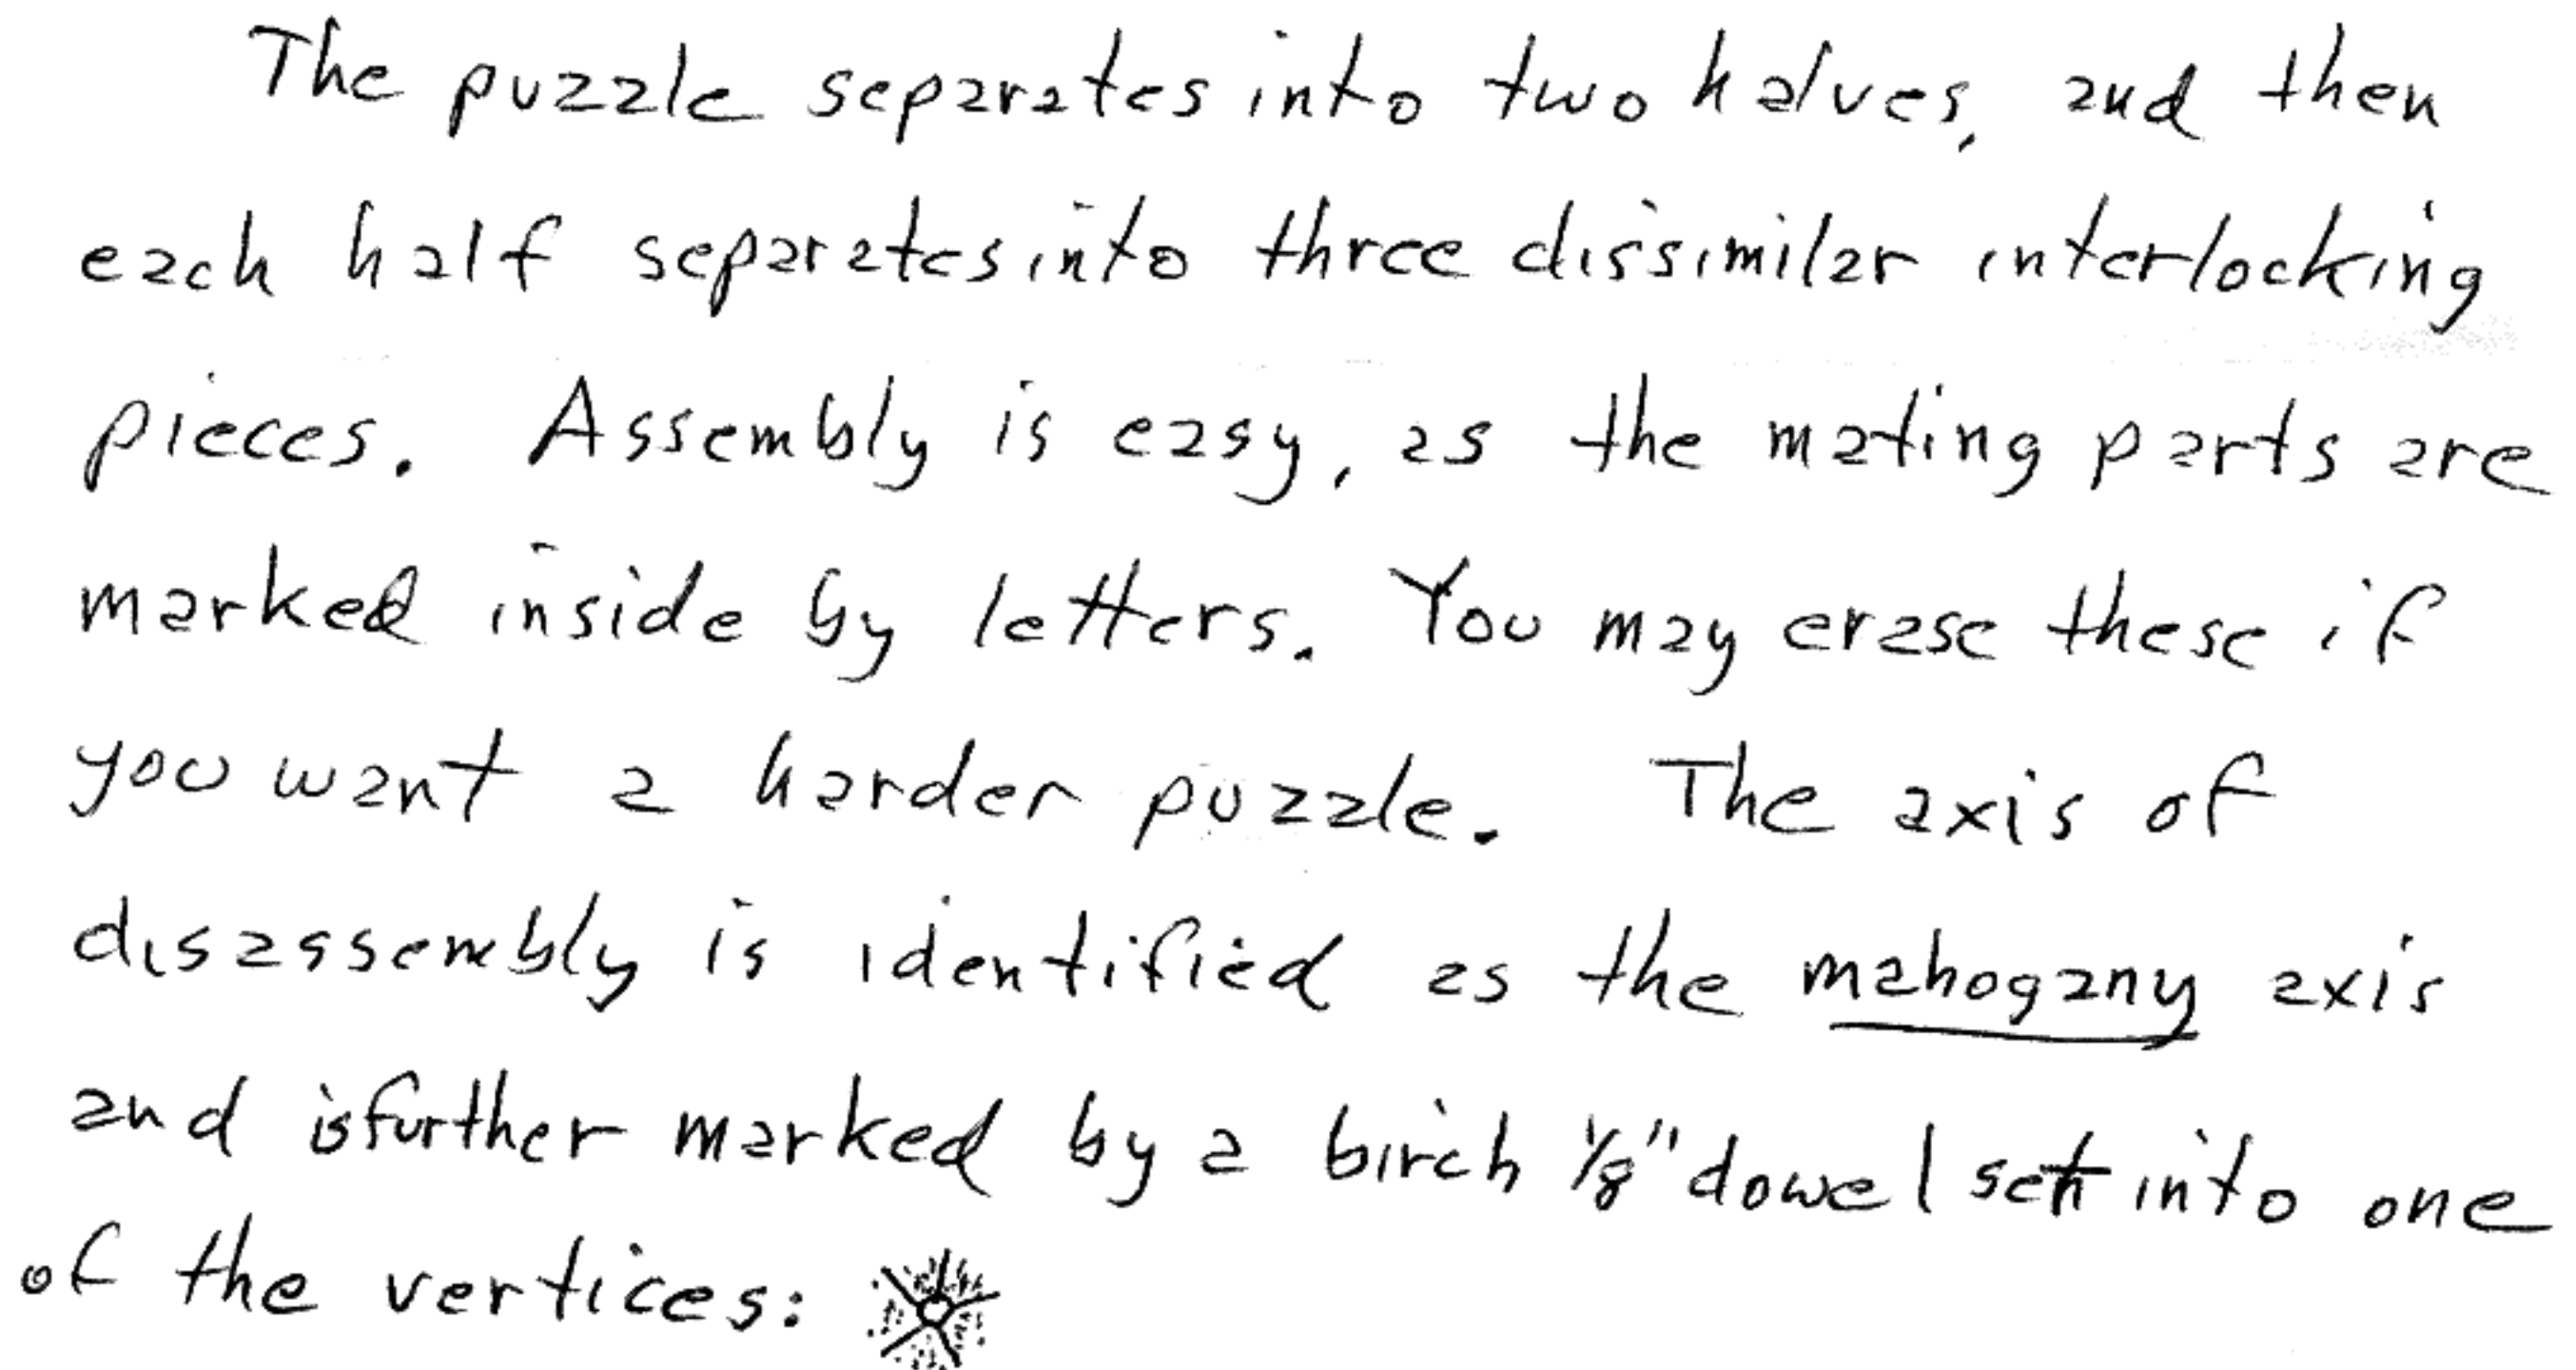 The puzzle separates into two halves, and then
each half separates into three dissimilar interlocking
pieces. Assembly is easy, as the mating parts are
marked inside by letters. You may erase these if
you want a harder puzzle. The axis of
disassembly is identified as the mahogany axis
and is further marked by a birch 1/8" dowel set into one
of the vertices: